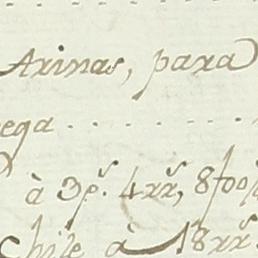 Arinas, para
ega . . . . . . .
à 3p.s 4rr.s, 8foo
Chile à 18rr.s